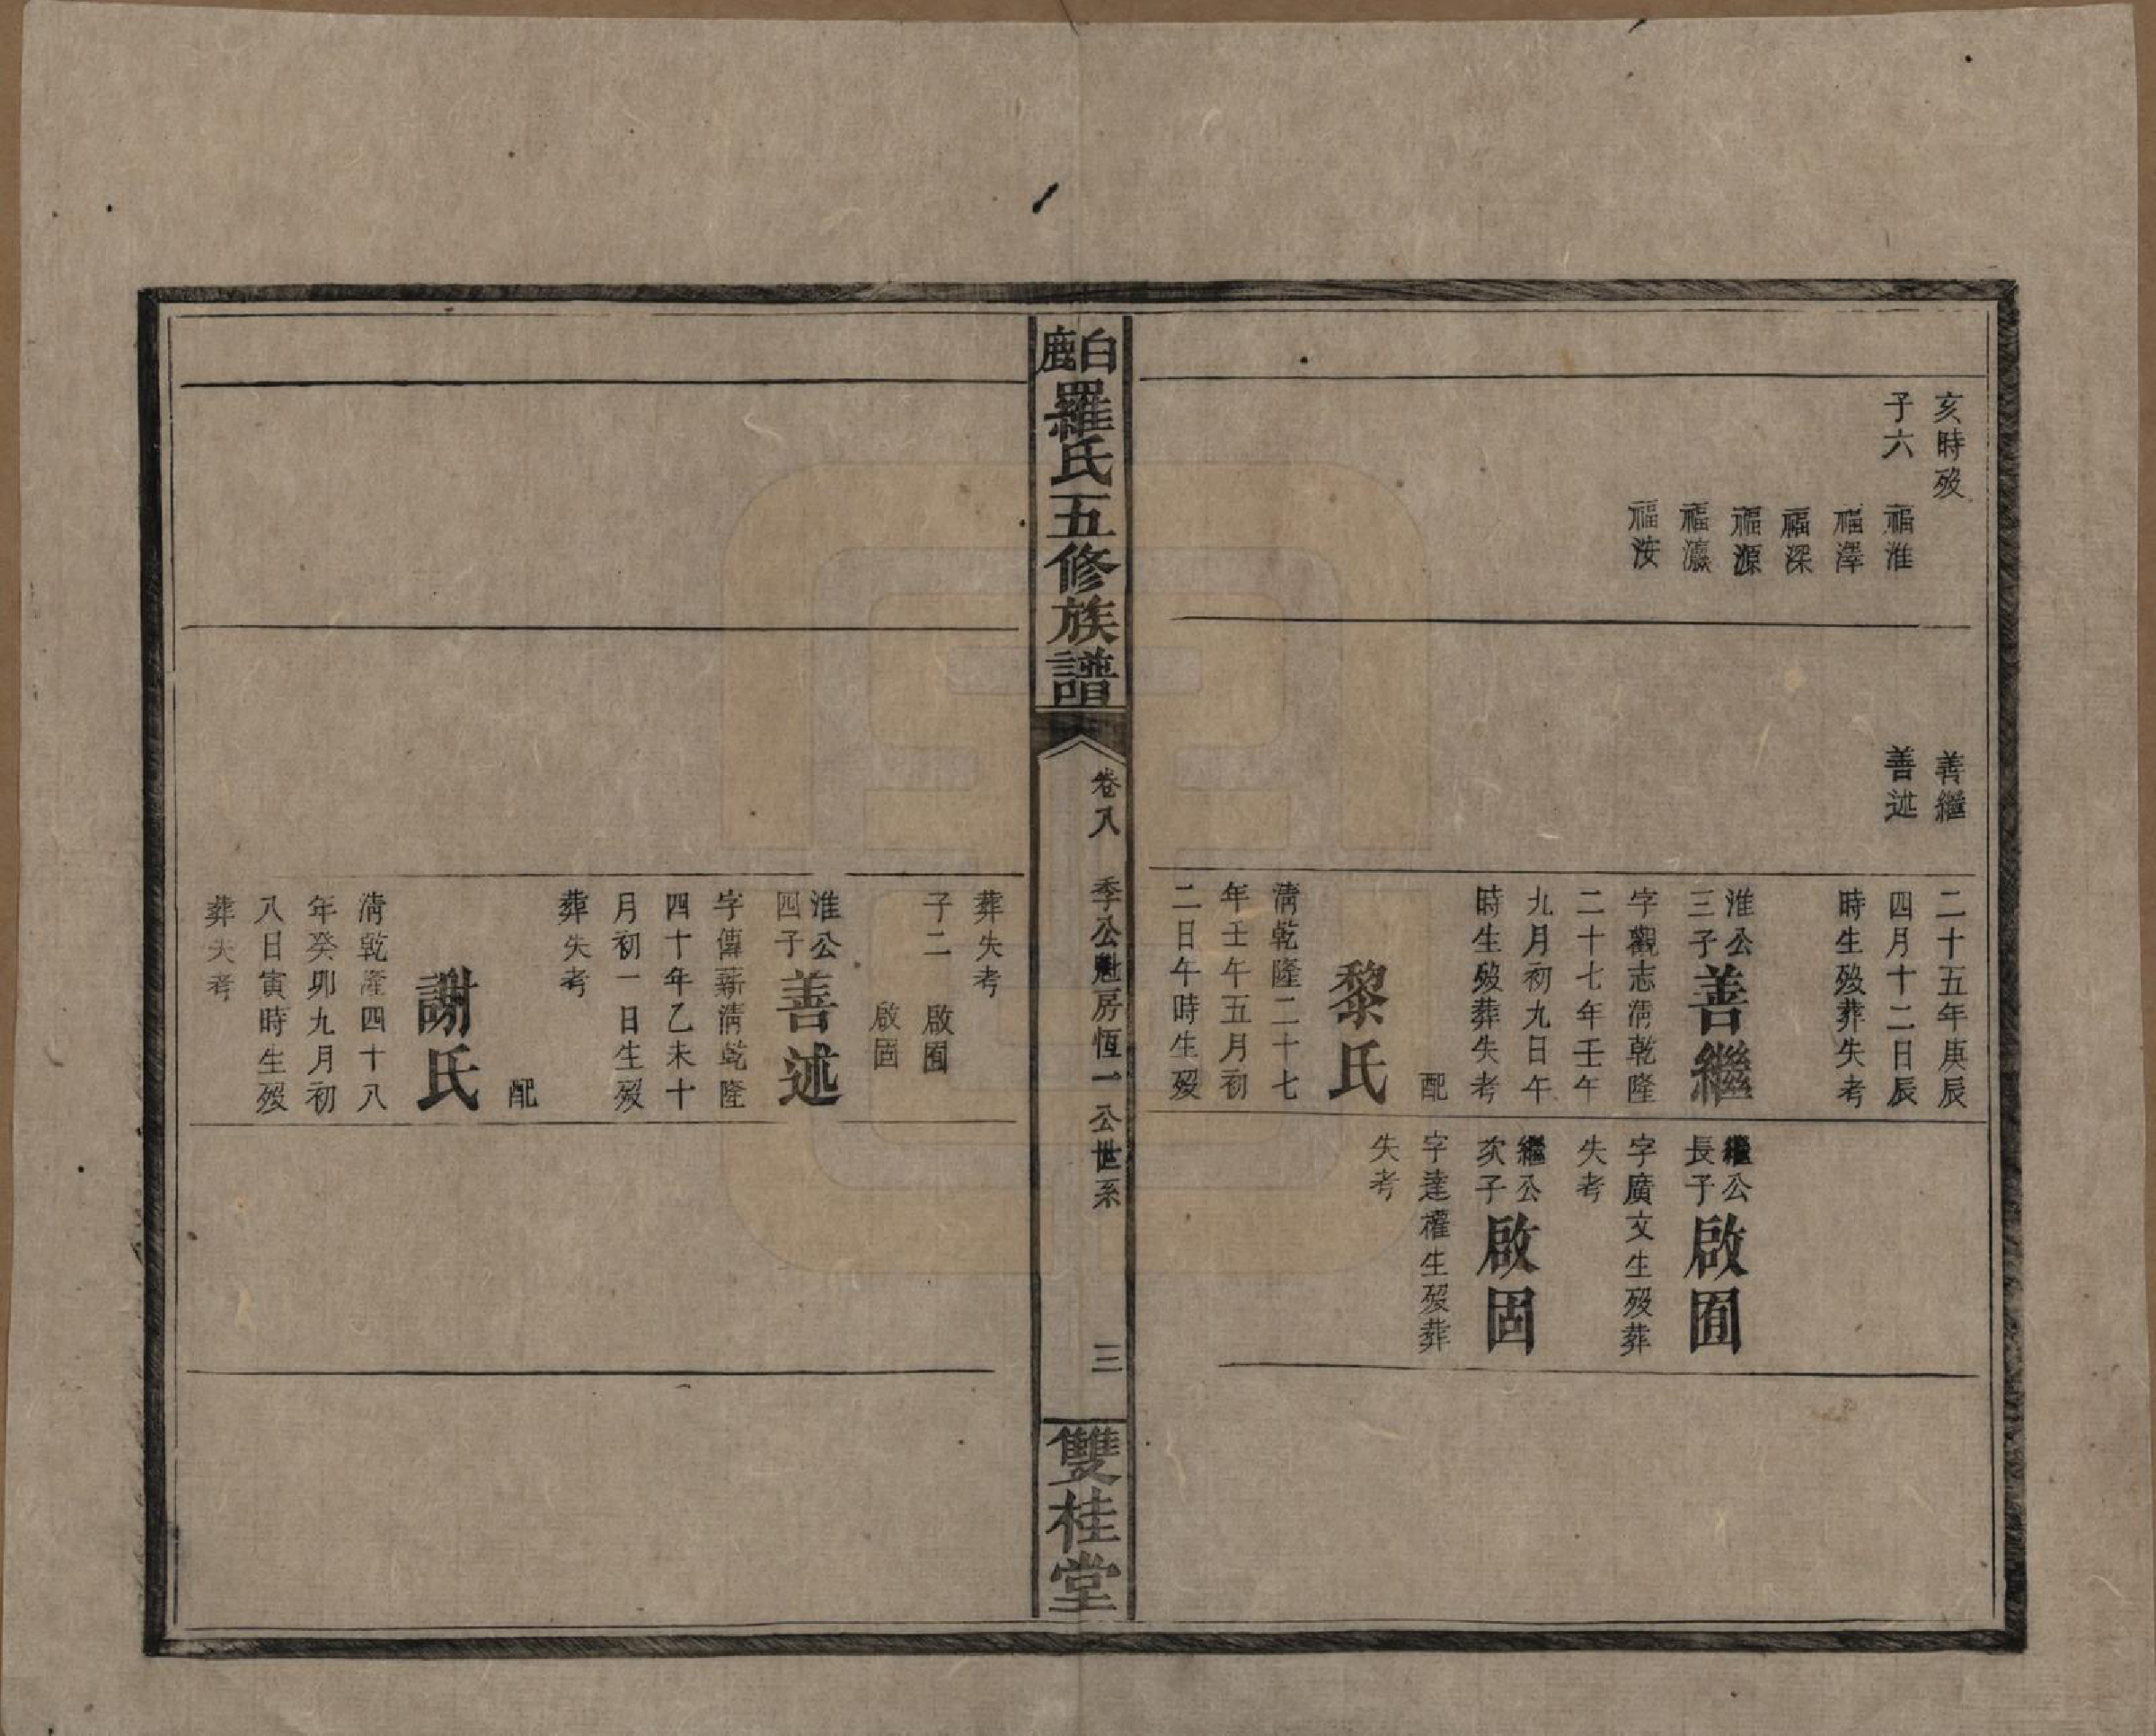 亥時歿
子六　福淮
福澤
福深
福源
福瀛
福汝
善繼
善述
二十五年庚辰
四月十二日辰
時生歿葬失考
淮公
三子
善繼
字觀志清乾隆
二十七年壬午
九月初九日午
時生歿葬失考
配
黎氏
清乾隆二十七
年壬午五月初
二日午時生歿
繼公
長子
啟囿
字廣文生歿葬
失考
繼公
次子
啟固
字達權生歿葬
失考
白鹿
羅氏五修族譜
卷八　季公魁房恆一公世系
三
雙桂堂
葬失考
子二　啟囿
啟固
淮公
四子
善述
字傳薪清乾隆
四十年乙未十
月初一日生歿
葬失考
配
謝氏
清乾隆四十八
年癸卯九月初
八日寅時生歿
葬失考